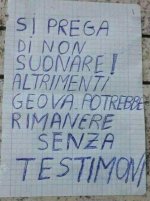 SI PREGA
DI NON
SUONARE!
ALTRIMENTI
GEOVA POTREBBE
RIMANERE
SENZA
TESTIMONI